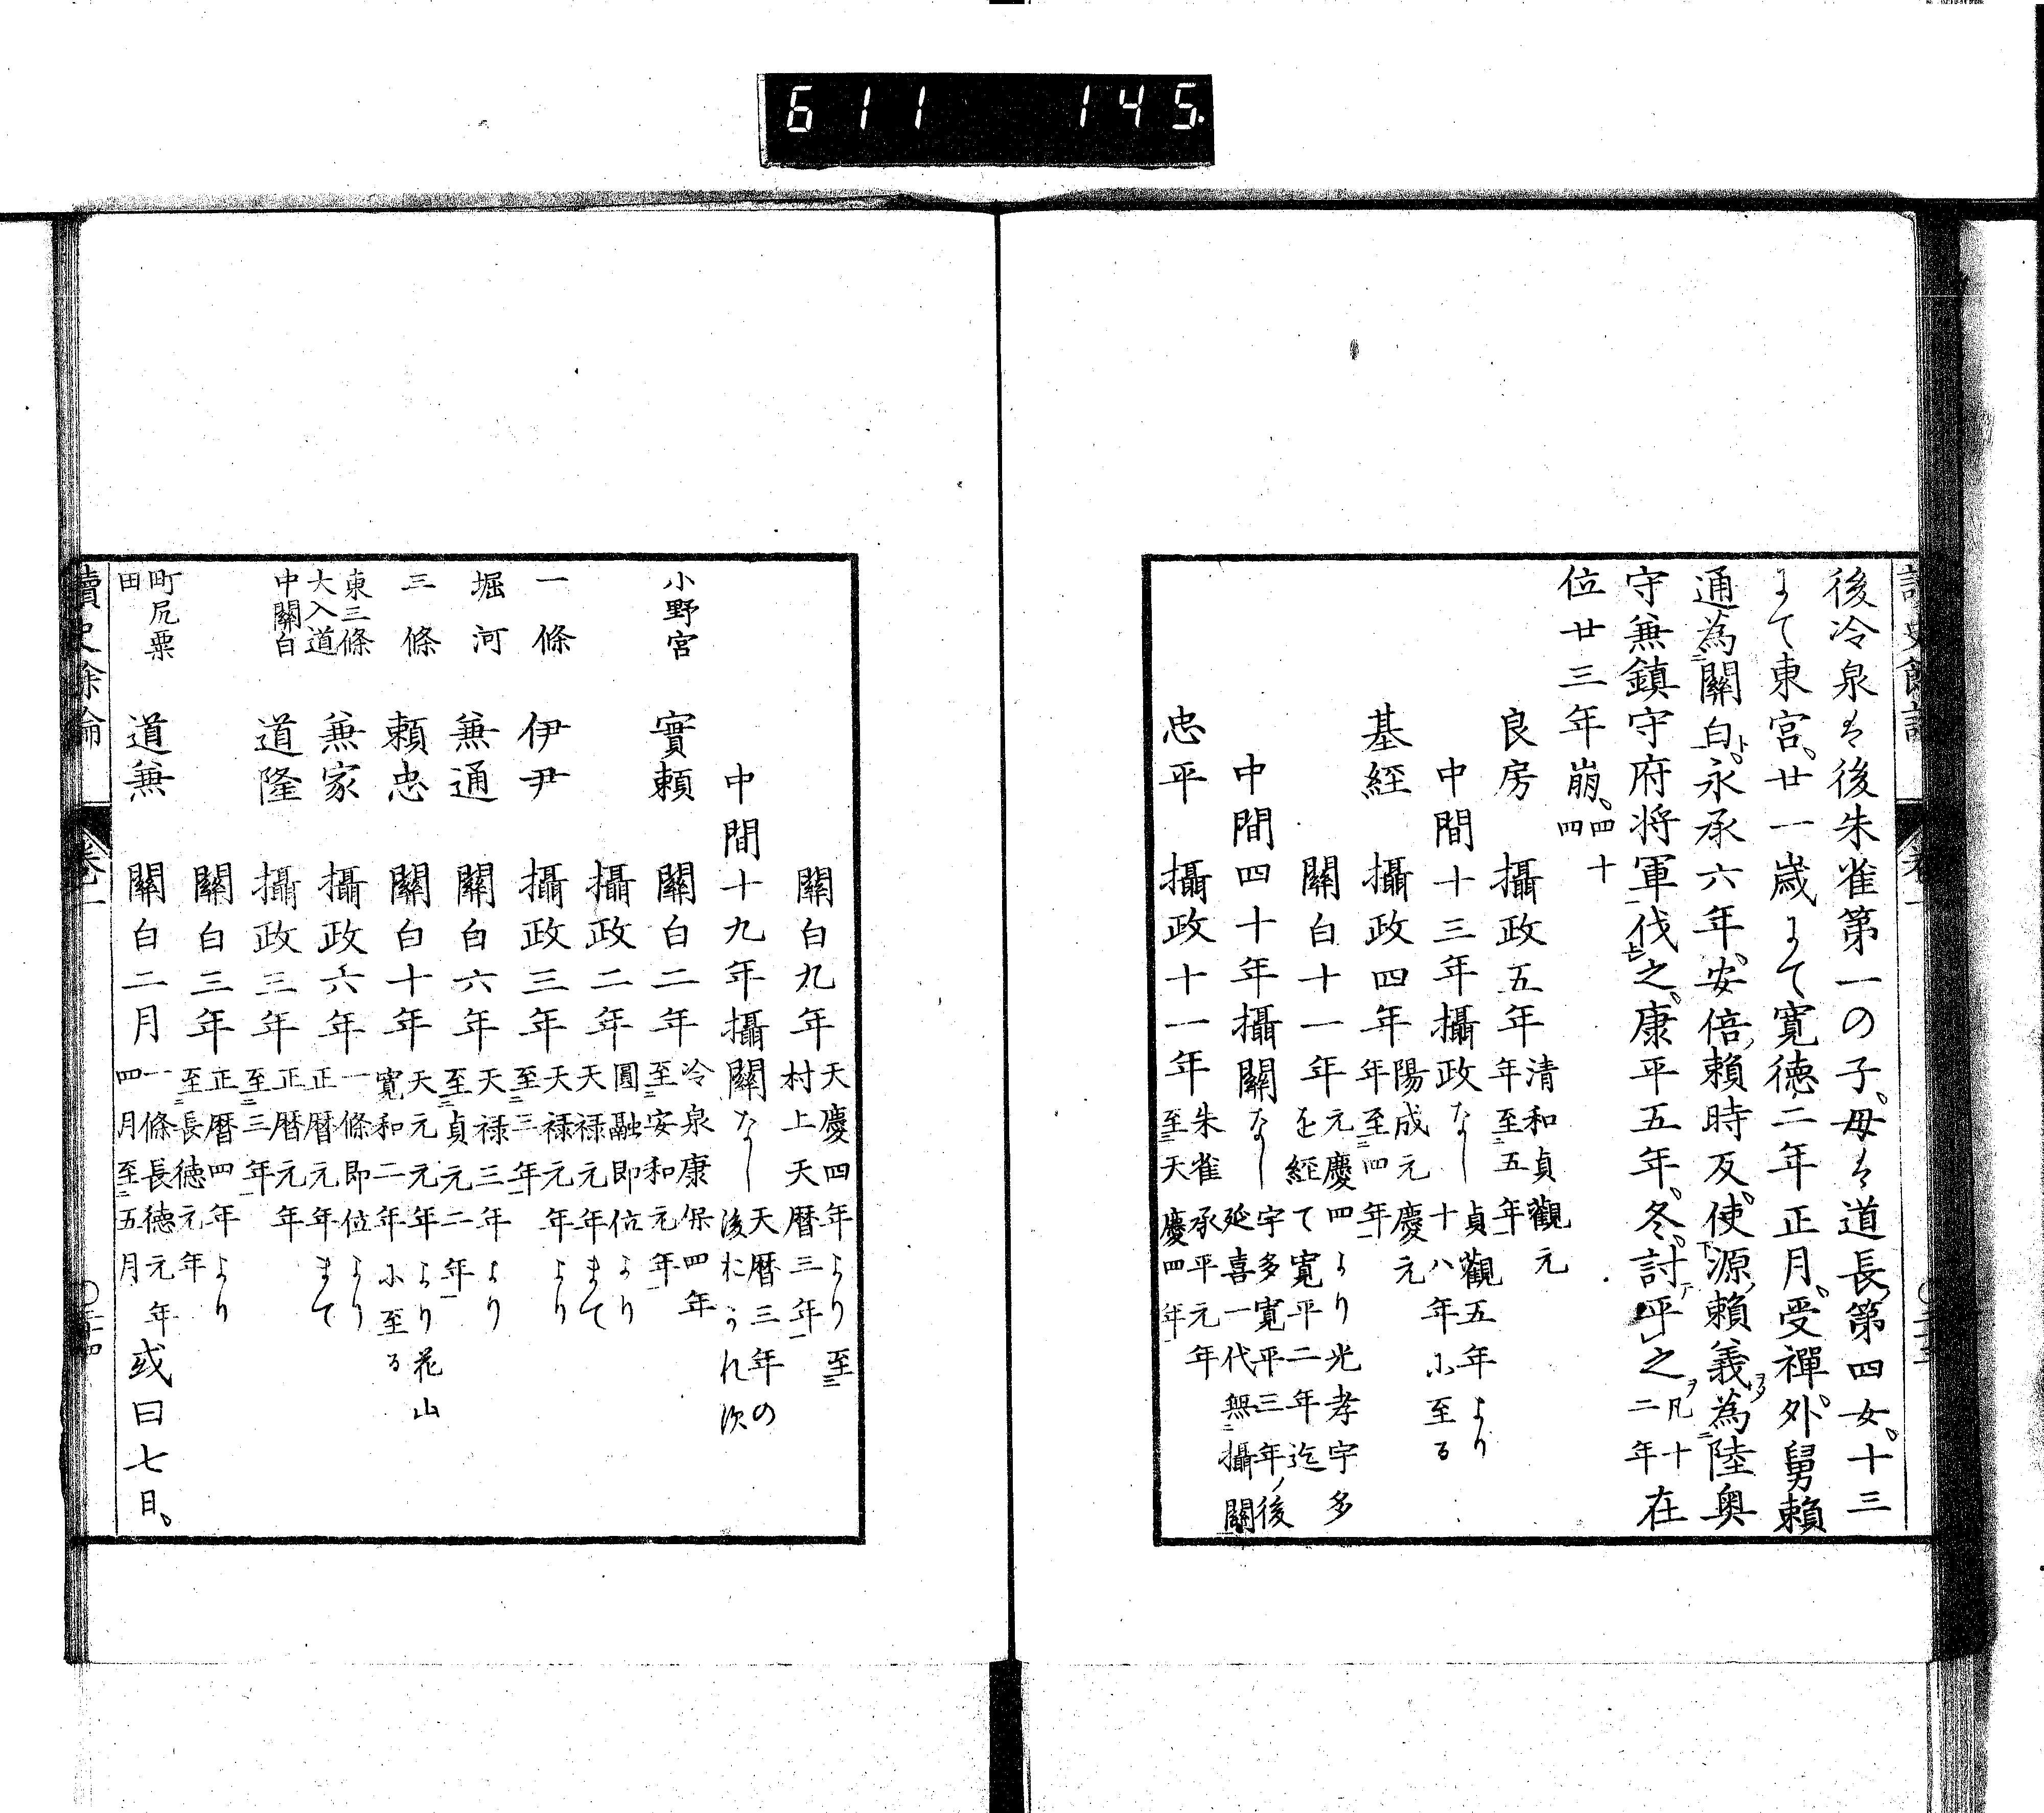 611 145
後冷泉は後朱雀第一の子。母は道長第四女。十三
にて東宮。廿一歳にて寛徳二年正月。受禪。外舅賴
通為關白。永承六年。安倍賴時反。使源賴義為陸奥
守兼鎮守府将軍伐之。康平五年。冬。討平之凡十二年在
位廿三年崩。四十四
良房 攝政五年清和貞觀元年至五年
中間十三年攝政なし貞觀五年より十八年に至る
基經 攝政四年陽成元慶元年至四年
關白十一年元慶四より光孝宇多を経て寛平二年迄
中間四十年攝關なし宇多寛平三年後延喜一代無攝關
忠平 攝政十一年朱雀承平元年至天慶四年
關白九年天慶四年より至村上天暦三年
中間十九年攝關なし天暦三年の後
小野宮 實賴 關白二年冷泉康保四年至安和元年
攝政二年圓融即位より天禄元年まて
一條 伊尹 攝政三年天禄元年より至三年
堀河 兼通 關白六年天禄三年より至貞元二年
三條 賴忠 關白十年天元元年より花山寛和二年に至る
東三條大入道 兼家 攝政六年一條即位より正暦元年まて
中關白 道隆 攝政三年正暦元年至三年
關白三年正暦四年より至長徳元年
町尻粟田 道兼 關白二月一條長徳元年四月至五月或曰七日。
讀史餘論 卷一